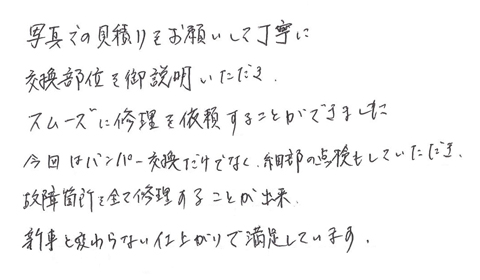 写真での見積りをお願いして丁寧に
交換部位を御説明いただき.
スムーズに修理を依頼することができました
今回はバンパー交換だけでなく、細部の点検もしていただき、
故障箇所を全て修理することが出来.
新車と変わらない仕上がりで満足しています.